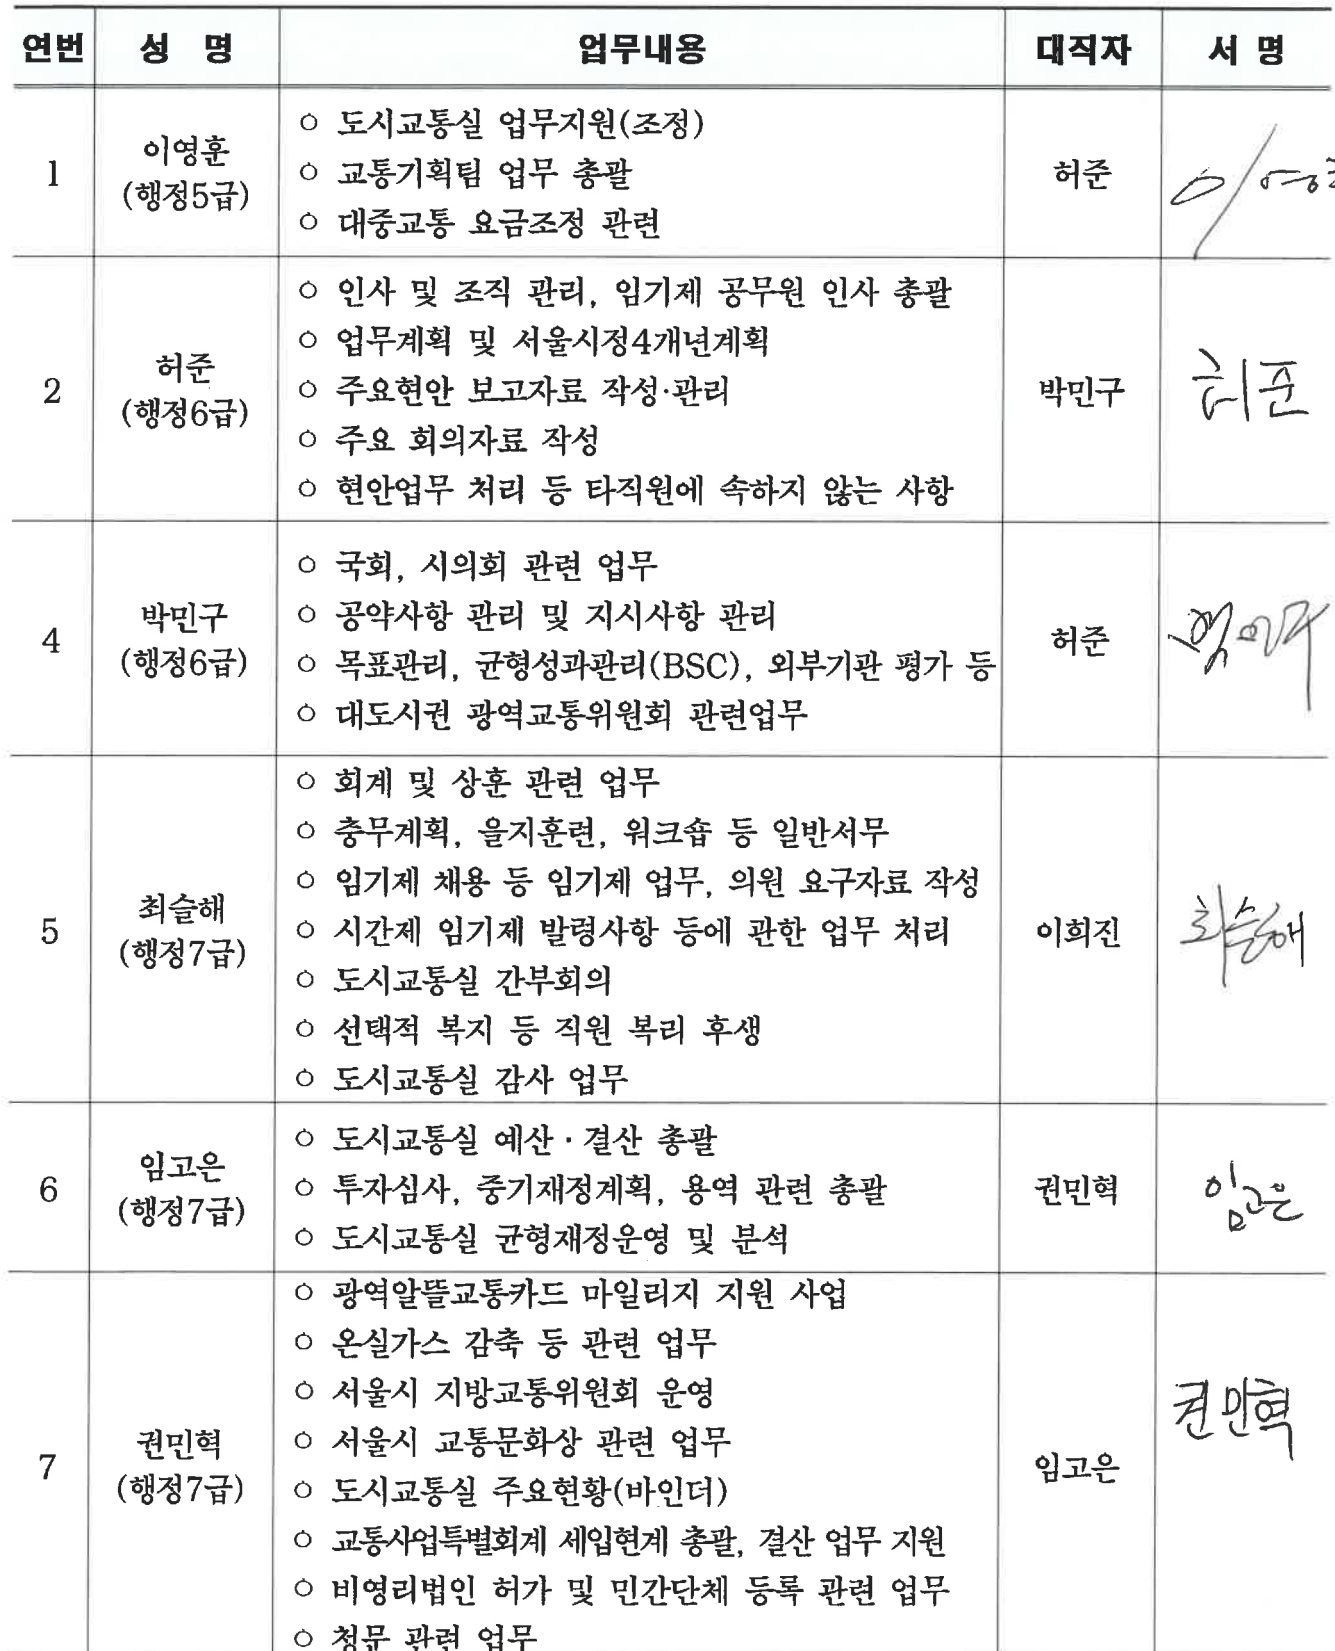 연번 성 명 업무내용 대직자 서 명
1 이영훈 (행정5급) 허준
○ 도시교통실 업무지원(조정)
○ 교통기획팀 업무 총괄
○ 대중교통 요금조정 관련
2 허준 (행정6급) 박민구 허준
○ 인사 및 조직 관리, 임기제 공무원 인사 총괄
○ 업무계획 및 서울시정4개년계획
○ 주요현안 보고자료 작성·관리
○ 주요 회의자료 작성
○ 현안업무 처리 등 타직원에 속하지 않는 사항
4 박민구 (행정6급) 허준 박민구
○ 국회, 시의회 관련 업무
○ 공약사항 관리 및 지시사항 관리
○ 목표관리, 균형성과관리(BSC), 외부기관 평가 등
○ 대도시권 광역교통위원회 관련업무
5 최슬해 (행정7급) 이희진 최슬해
○ 회계 및 상훈 관련 업무
○ 충무계획, 을지훈련, 워크숍 등 일반서무
○ 임기제 채용 등 임기제 업무, 의원 요구자료 작성
○ 시간제 임기제 발령사항 등에 관한 업무 처리
○ 도시교통실 간부회의
○ 선택적 복지 등 직원 복리 후생
○ 도시교통실 감사 업무
6 임고은 (행정7급) 권민혁 임고은
○ 도시교통실 예산·결산 총괄
○ 투자심사, 중기재정계획, 용역 관련 총괄
○ 도시교통실 균형재정운영 및 분석
7 권민혁 (행정7급) 임고은 권민혁
○ 광역알뜰교통카드 마일리지 지원 사업
○ 온실가스 감축 등 관련 업무
○ 서울시 지방교통위원회 운영
○ 서울시 교통문화상 관련 업무
○ 도시교통실 주요현황(바인더)
○ 교통사업특별회계 세입현계 총괄, 결산 업무 지원
○ 비영리법인 허가 및 민간단체 등록 관련 업무
○ 청문 관련 업무